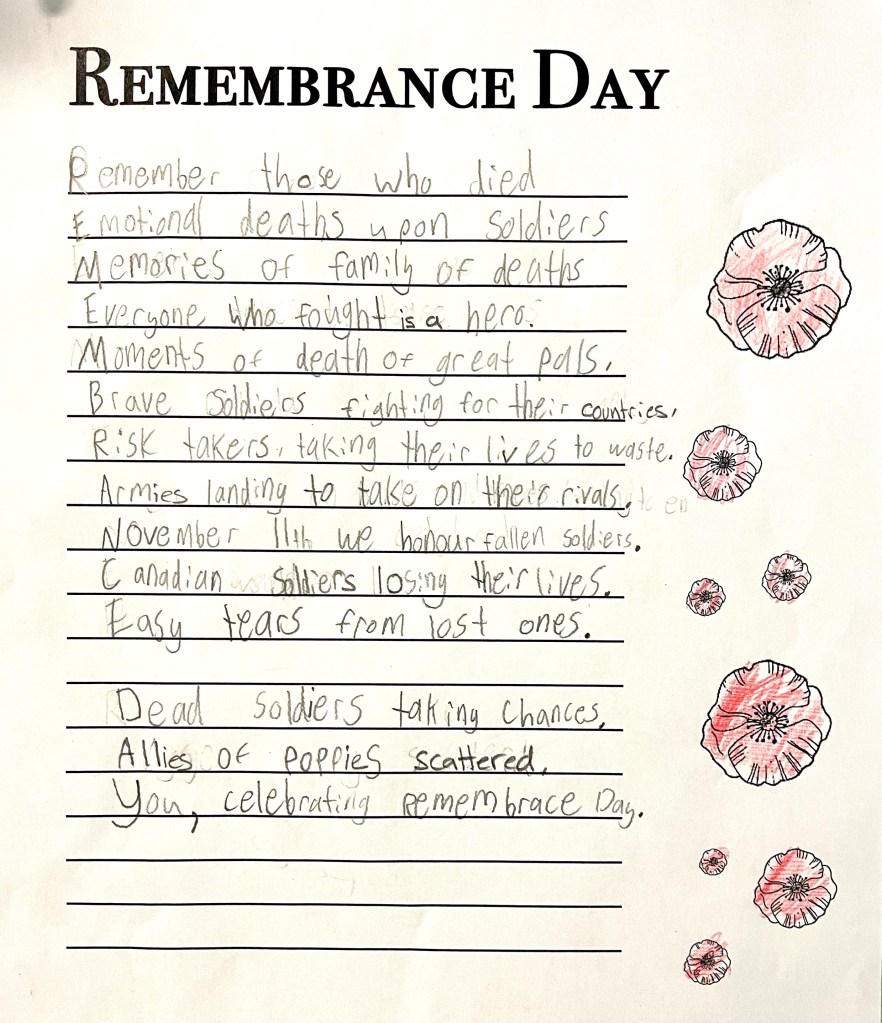 REMEMBRANCE DAY
Remember those who died
Emotional deaths upon Soldiers
Memories of family of deaths
Everyone who fought is a hero.
Moments of death of great palls.
Brave Soldiers fighting for their countries.
Risk takers, taking their lives to waste.
Armies landing to take on their rivals,
November 11th we honour fallen soldiers.
Canadian Soldiers losing their lives.
Easy tears from lost ones.
Dead soldiers taking chances,
Allies of poppies scattered,
You, celebrating Remembrace Day.